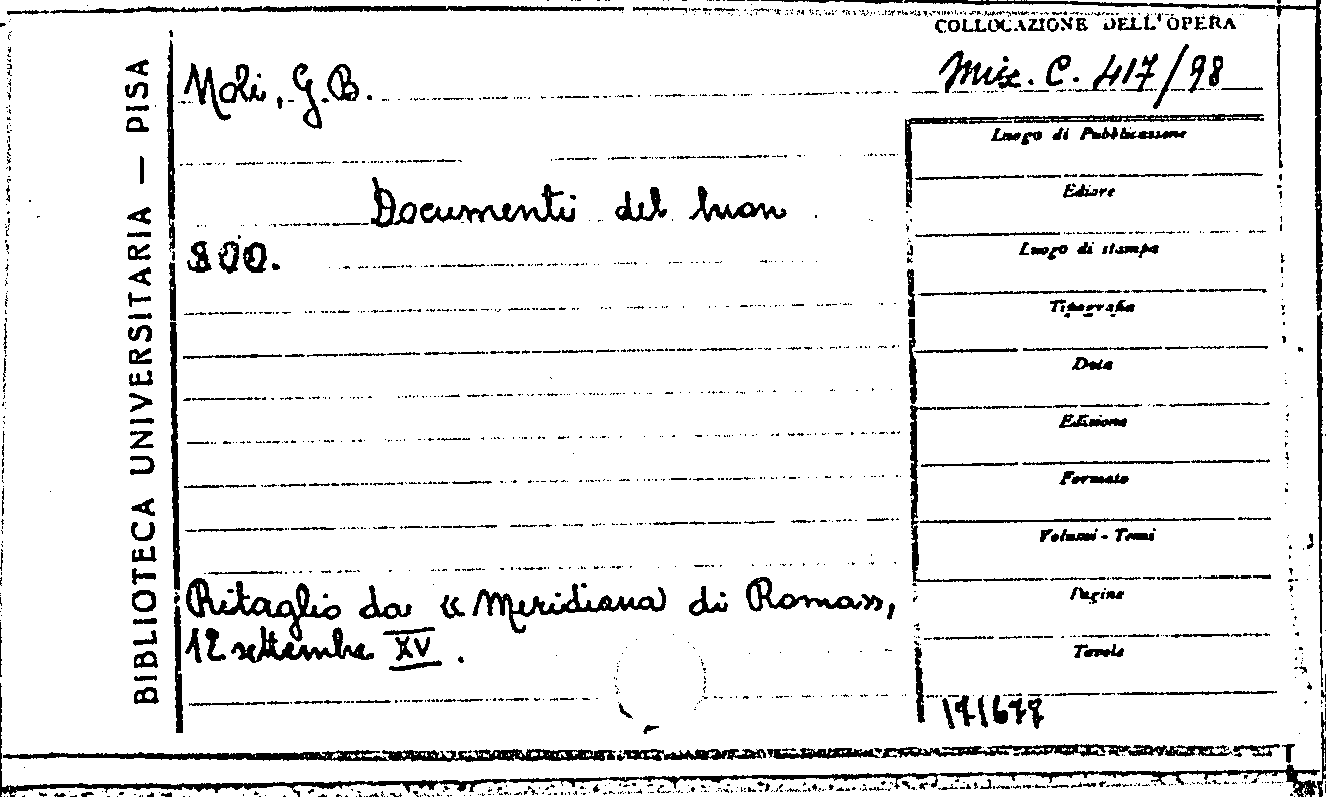 BIBLIOTECA UNIVERSITARIA — PISA
COLLOCAZIONE DELL'OPERA
Misc. C. 417/98
Noli, G.B.
Documenti del buon
800.
Ritaglio da «Meridiano di Roma»,
12 settembre XV.
Luogo di Pubblicazione
Editore
Luogo di stampa
Tipografia
Data
Edizione
Formato
Volumi - Tomi
Pagine
Tavole
171677